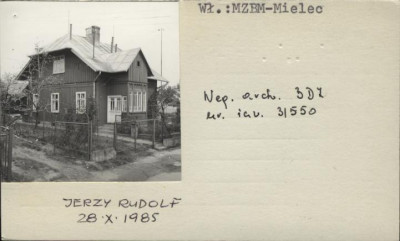 Wł.:MZBM-Mielec
Neg. arch. 3DZ
nr. inw. 31550
JERZY RUDOLF
28·X·1985